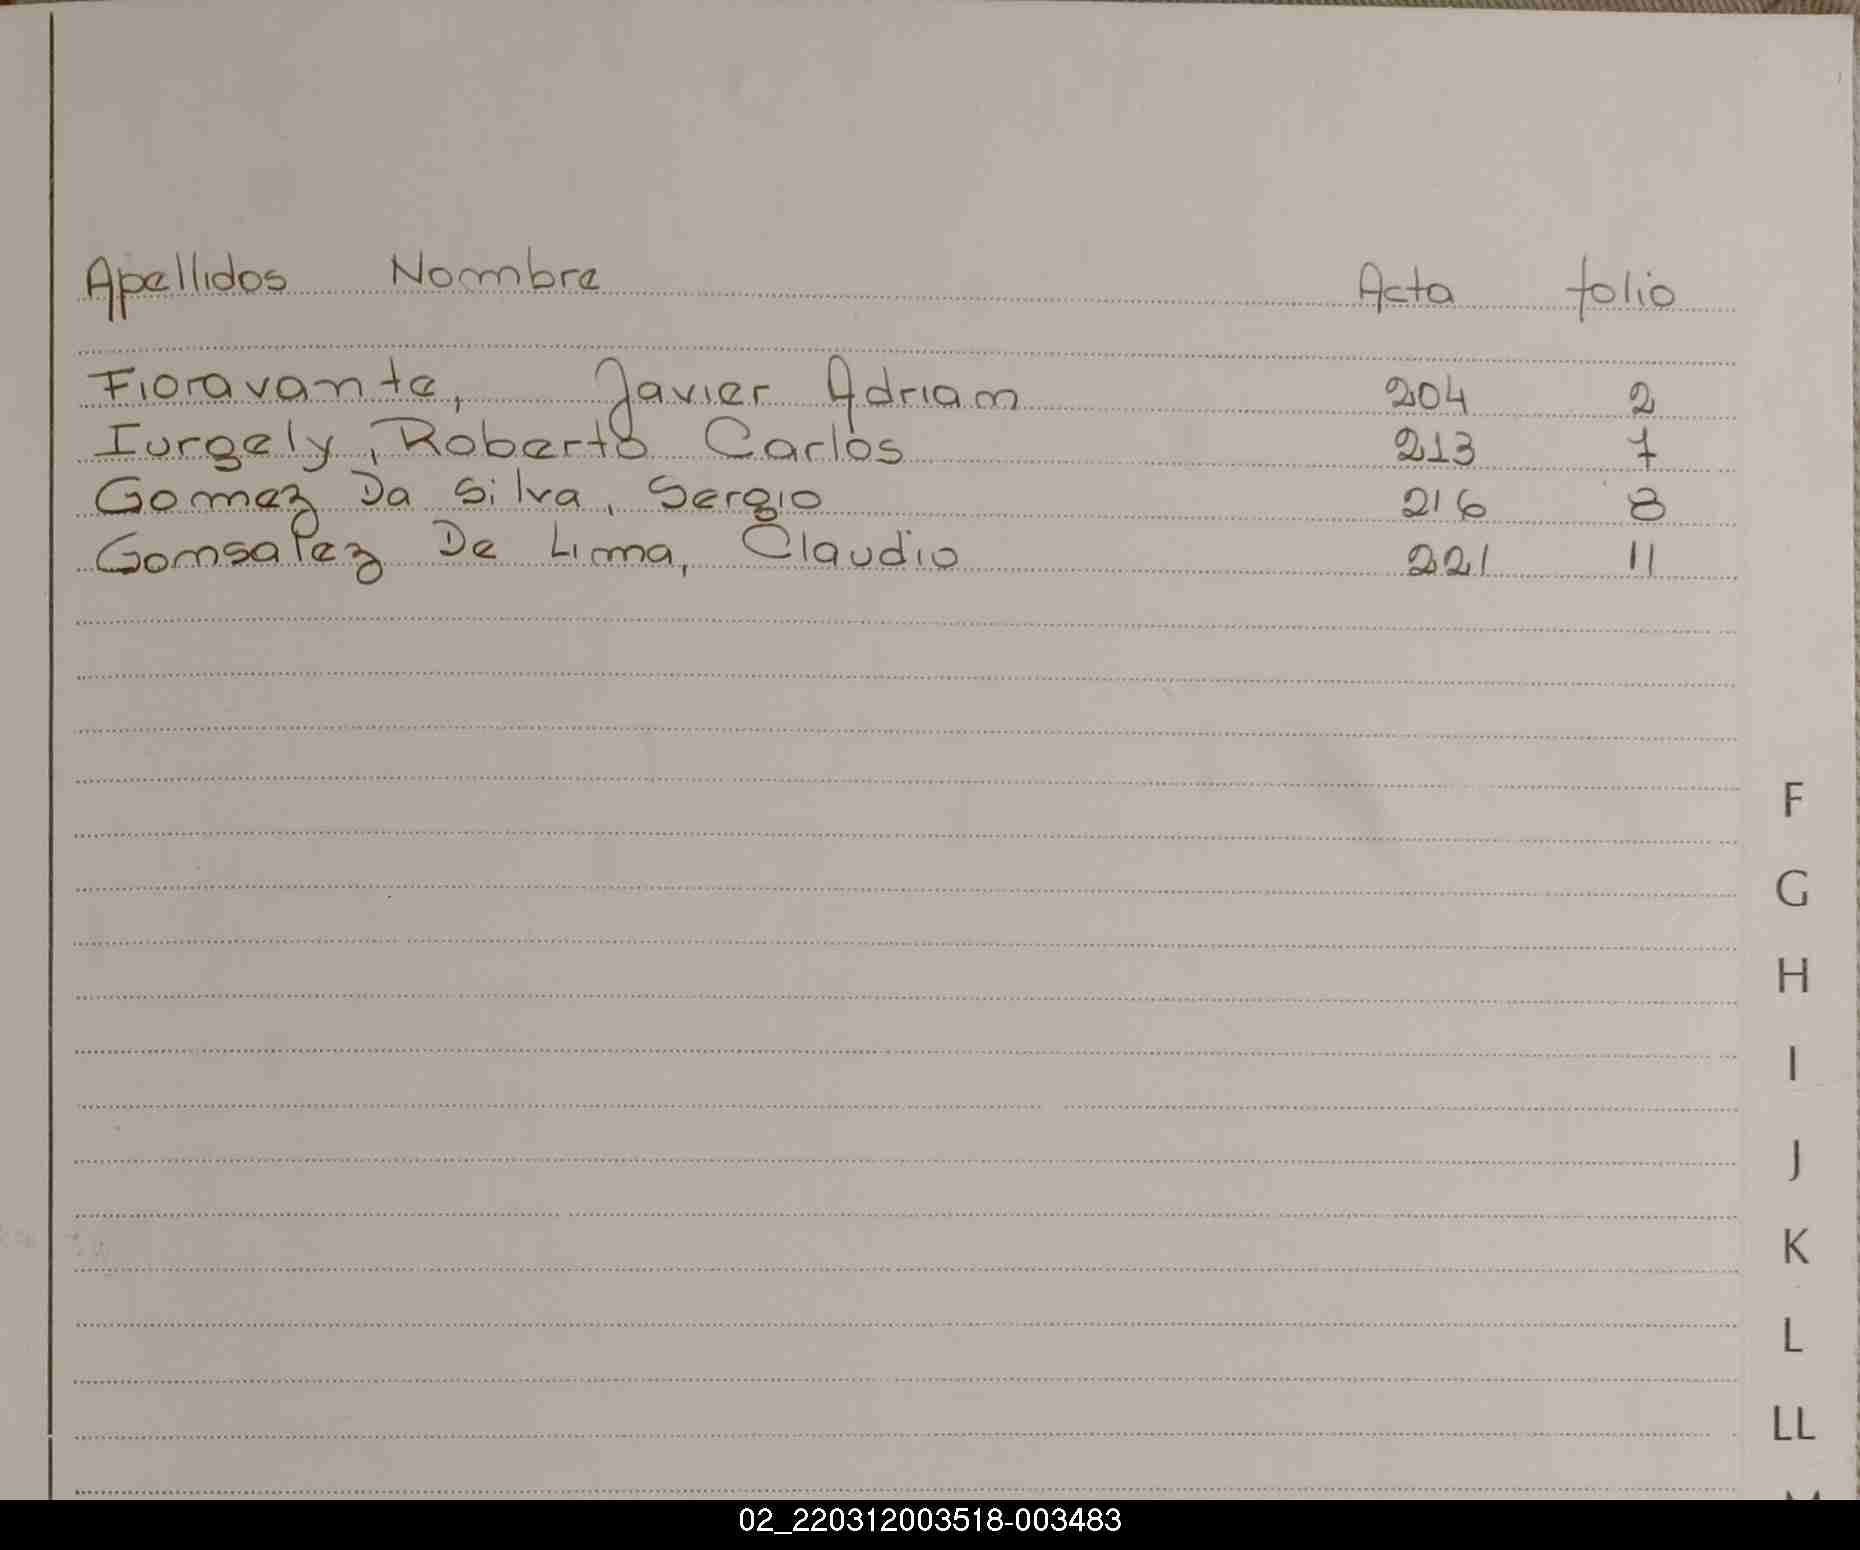 Apellidos Nombre Acta folio
Fioravante, Javier Adrian 204 2
Iurgely, Roberto Carlos 213 7
Gomez Da Silva, Sergio 216 8
Gonsalez De Lima, Claudio 221 11
F
G
H
I
J
K
L
LL
02_220312003518-003483